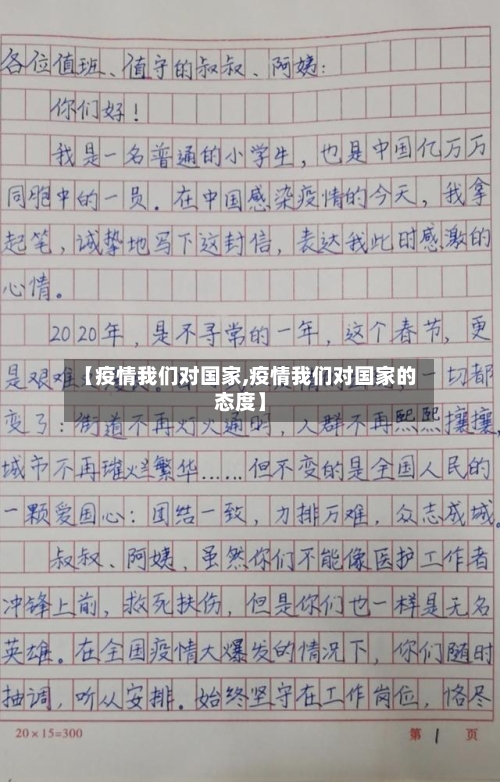 各位值班、值守的叔叔、阿姨:
你们好!
我是一名普通的小学生,也是中国亿万万
同胞中的一员。在中国感染疫情的今天,我拿
起笔,诚挚地写下这封信,表达我此时感激的
心情。
2020年,是不寻常的一年,这个春节,更
是艰难 一切都
【疫情我们对国家,疫情我们对国家的
态度】
变了:街道不再灯火通明,人群不再熙熙攘攘,
城市不再璀灿繁华……但不变的是全国人民的
一颗爱国心:团结一致,力排万难,众志成城。
叔叔、阿姨,虽然你们不能像医护工作者
冲锋上前,救死扶伤,但是你们也一样是无名
英雄。在全国疫情大爆发的情况下,你们随时
抽调,听从安排。始终坚守在工作岗位,恪尽
20×15=300 第 1 页